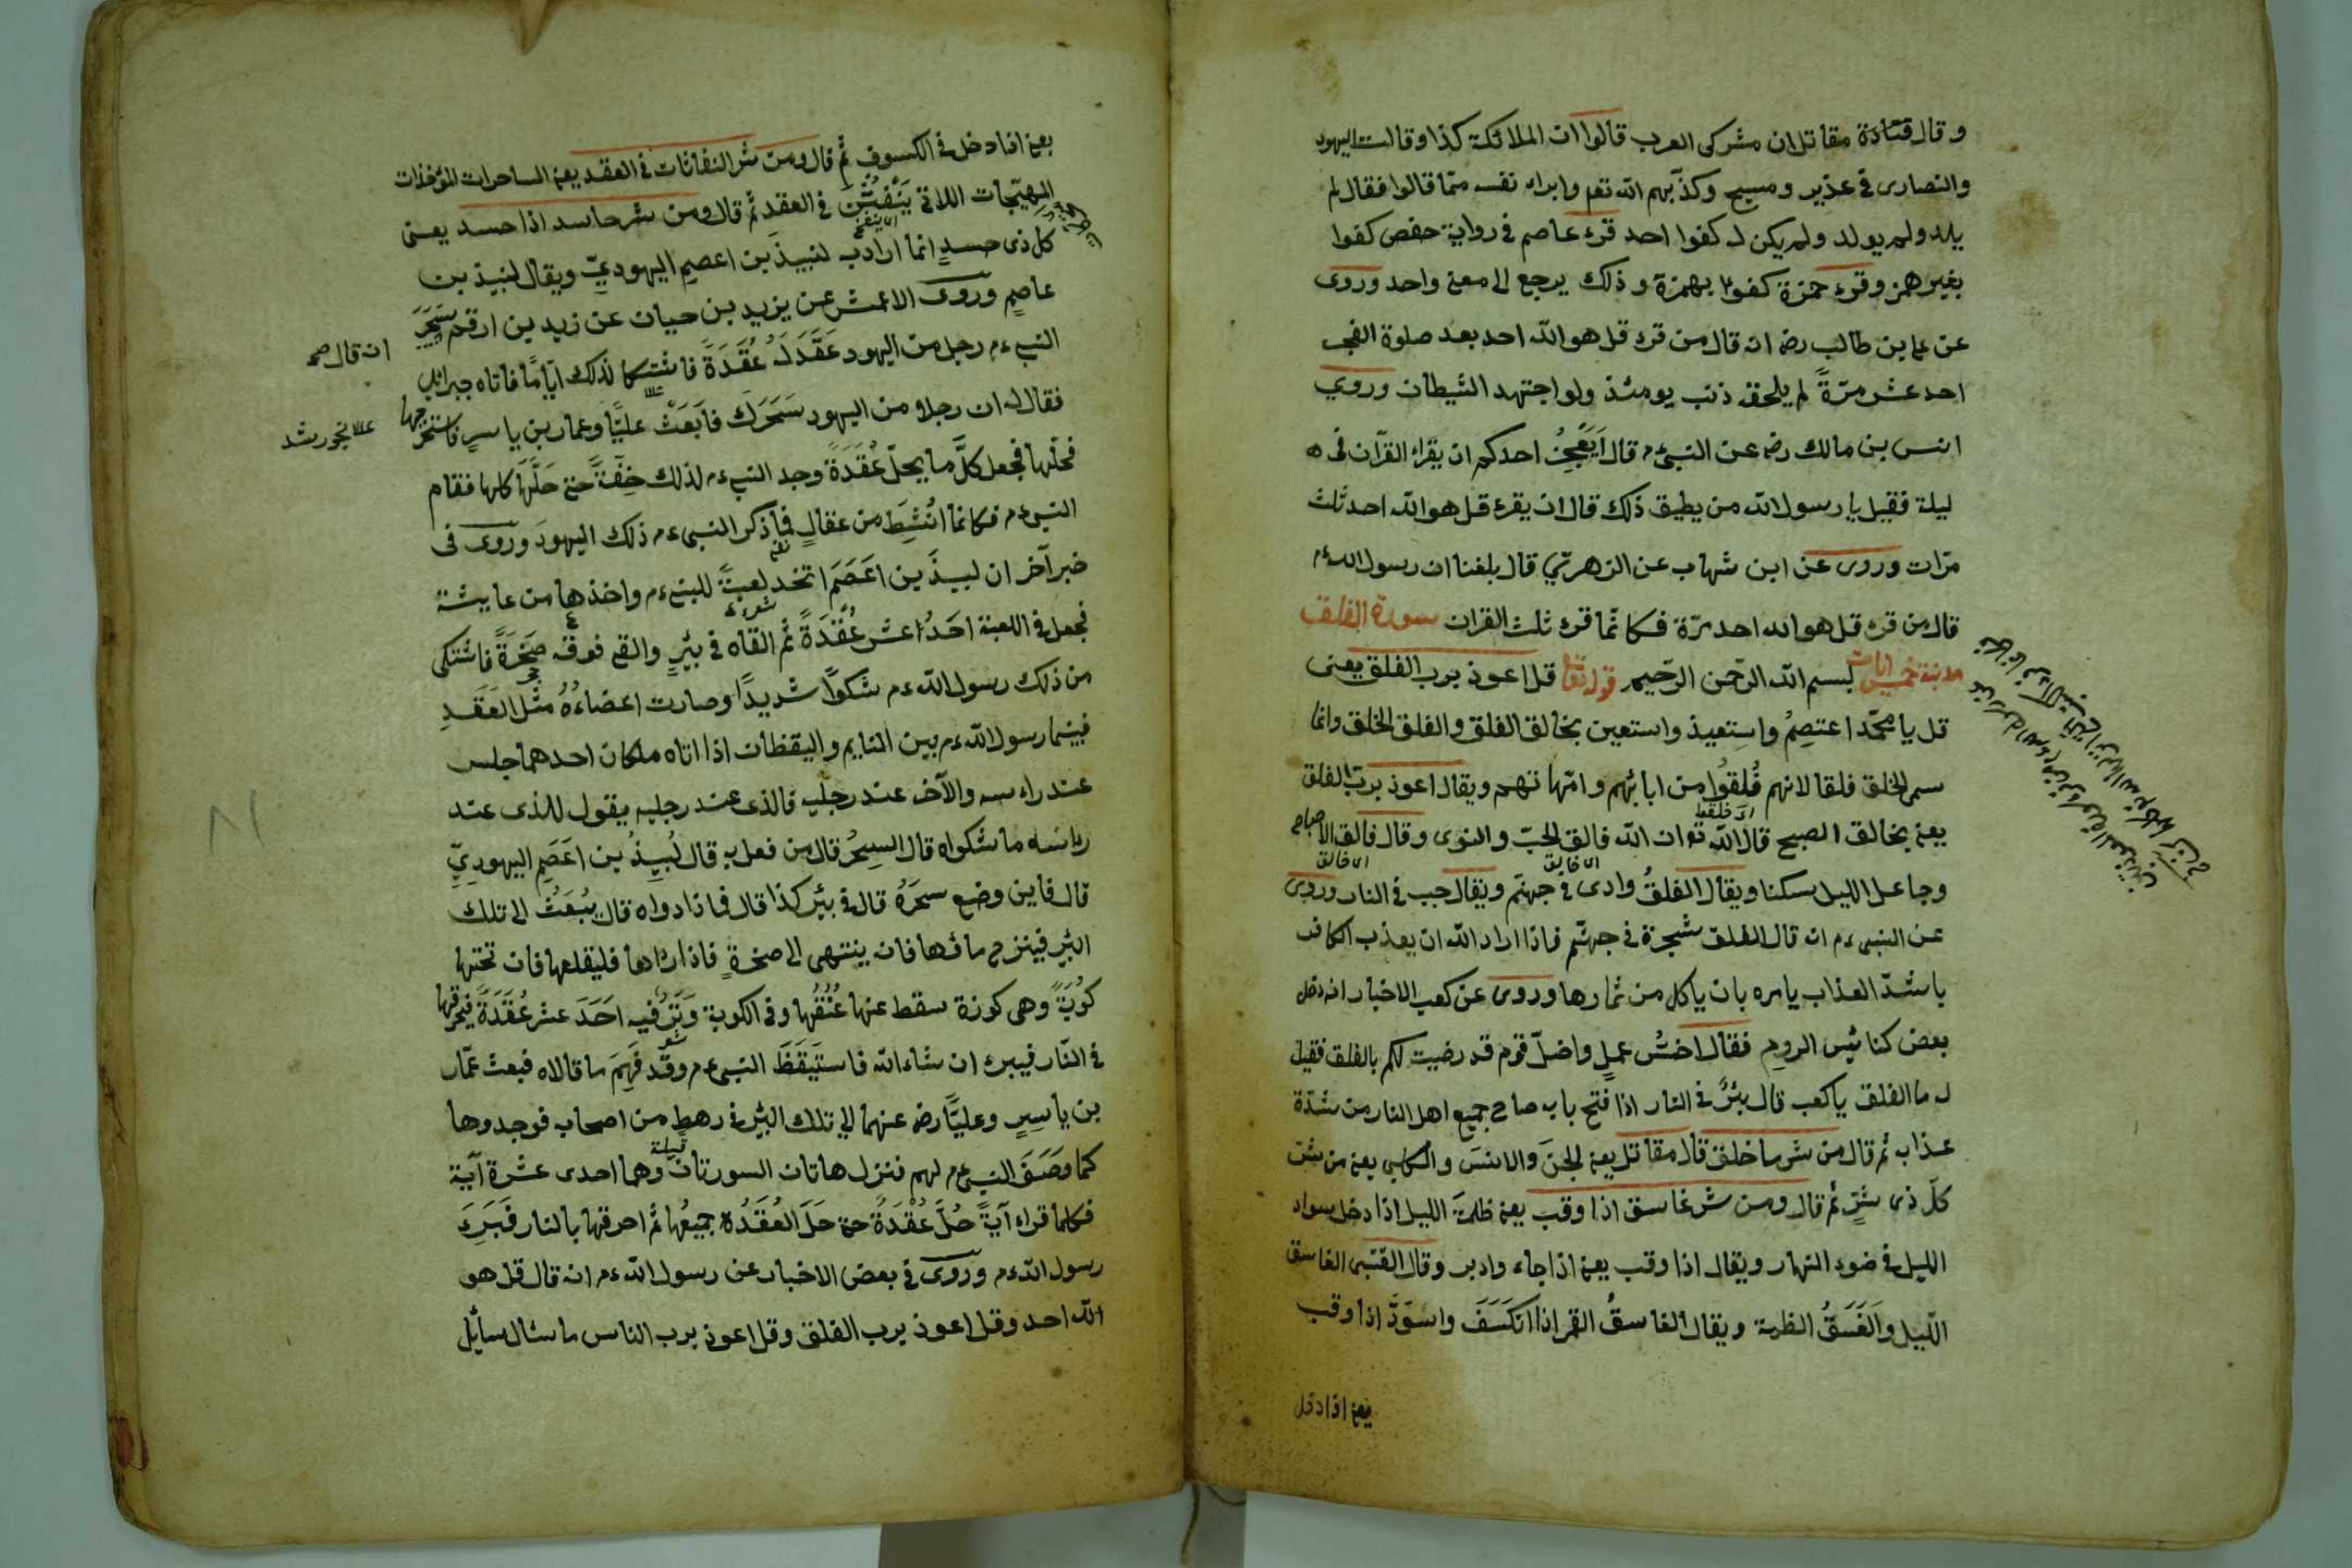 وقال قتادة مقاتل ان مشركى العرب قالوا ان الملائكة كذا وقالت اليهود
والنصارى فى عذير ومسيح وكذّبهم الله تعم وابراء نفسه ممّا قالوا فقال لم
يلد ولم يولد ولم يكن له كفوا احد قرء عاصم فى رواية حفص كفوا
بغير همز وقرء حمزة كفوا بهمزة وذلك يرجع الى معنى واحد وروى
عن على بن طالب رضه انه قال من قرء قل هو الله احد بعد صلوة الفجر
احد عشر مرّةً لم يلحقه ذنب يومئذ ولو اجتهد الشيطان وروى
انس بن مالك رضه عن النبىء م قال ايَعْجِزُ احدكم ان يقراء القرآن فى
ليلة فقيل يا رسول الله من يطيق ذلك قال ان يقرء قل هو الله احد ثلث
مرّات وروى عن ابن شهاب عن الزهرىّ قال بلغنا ان رسول الله ء م
قال من قرء قل هو الله احد مرّة فكانّما قرء ثلث القران سورة الفلق
مدنية خمس ايات بسم الله الرّحمن الرّحيم قوله تعا قل اعوذ برب الفلق يعنى
قل يا محمّد اعتصِمُ واستعيذ واستعين بخالق الفلق والفلق الخلق وانما
سمى الخلق فلقا لانهم فُلقوُا من ابائهم وامّهاتهم ويقال اعوذ بربّ الفلق
يعنى بخالق الصبح قال الله تعوان الله فالق الحبّ والنوى وقال فالق الاصباح
وجاعل الليل سكنا ويقال الفلقُ وادى فى جهنّم ويقال جب فى النار وروى
عن النبىء م انه قال الفلق شجرة فى جهنّم فاذا اراد الله ان يعذب الكافر
باشدّ العذاب يامره بان ياكل من ثمارها وروى عن كعب الاخبار انه دخل
بعض كنائيس الروم فقال اخسُّ عملٍ واضلّ قوم قد رضيت لكم بالفلق فقيل
له ما الفلق يا كعب قال بئرٌ فى النار اذا فتح بابه صاح جميع اهل النار من شدّة
عذابه ثم قال من شر ما خلق قال مقاتل يعنى الجنّ والانسَ والكلبى يعنى من شر
كلّ ذى شرّ ثم قال ومن شر غاسق اذا وقب يعنى ظلمة الليل اذا دخل سواد
الليل فى ضوء النهار ويقال اذا وقب يعنى اذا جاء وادبر وقال القتبى الغاسق
اللّيل والغَسَقُ الظلمة ويقال الغاسقُ القمر اذا انكَسَفَ واسوَدَّ اذا وقب
يعنى اذا دخل
يعنى اذا دخل فى الكسوف ثم قال ومن شر النفاثات فى العقد يعنى الساحرات المؤخذات
المهيّجات اللاتى يَنْفُثْنَ فى العقد ثم قال ومن شر حاسد اذا حسد يعنى
كل ذى حسدٍ انما اراد به لنبيذ بن اعصم اليهودىّ ويقال لنبيذ بن
عاصم وروى الاعمش عن يزيد بن حيان عن زيد بن ارقم سَحَرَ
انه قال صح
النبىء م رجل من اليهود عَقَدَ لَهُ عُقَدَةً فاشتكا لذلك ايّامًا فاتاه جبرائل
فقال له ان رجلا من اليهود سَحَرَك فابَعَثْ عليًّا وعمار بن ياسر فاستخرجها
فحلّها فجعل كلّ ما يحلّ عُقَدَةً وجد النبىء م لذلك خِفّةً حتى حَلّهَا كلها فقام
النبىء م فكانما انُشِطَ من عقالٍ فما ذكر النبىء م ذلك اليهود وروى فى
خبر آخر ان لبيذ بن اعَصَم اتخد لعبةً للنبىء م واخذها من عايشة
فجعل فى اللعبة احَدُ اعشر عُقْدَةً ثم القاه فى بئرٍ والقى فوقه صَخَرَةً فاشتكى
من ذلك رسول الله ء م شكواً شديدًا وصارت اعضاءُهُ مثل العَقَدِ
فبينما رسول الله ء م بين النايم واليقظان اذا اتاه ملكان احدهما جلس
عند راءسه والآخر عند رجليه فالذى عند رجليه يقول للذى عند
رائسه ما شكواه قال السِحرُ قال من فعل به قال لُبيذُ بن اعَصَم اليهودىّ
قال فاين وضع سحرَهُ قال فى بئر كذا قال فما ذا دواه قال يُبُعَثُ الى تلك
البئر فينزح ماءُها فان ينتهى الى صخرةٍ فاذا راءها فليقلعها فان تحتها
كوُبَةً وهى كوزة سقط عنها عُنُقُها وفى الكوبة وَتَرٌ فيه احَدَ عشر عُقَدَةً فيحرقها
فى النّار فيبرء ان شاء الله فاستيَقَظَ النبىء م وقد فَهِمَ ما قالاه فبعث عمّار
بن ياسِرٍ وعليًّا رضه عنهما الى تلك البئر فى رهطٍ من اصحابه فوجدوها
كما وصَفَ النبىء م لهم فنزل هاتان السورتان وهما احدى عشرة آية
فكلما قراء آيةً حُلَّ عُقْدَةً حتى حَلَ العُقَدُه جميعُها ثم احرقها بالنار فبَرِءَ
رسول الله ء م وروى فى بعض الاخبار عن رسول الله ء م انه قال قل هو
الله احد وقل اعوذ برب الفلق وقل اعوذ برب الناس ما سئال سائيل